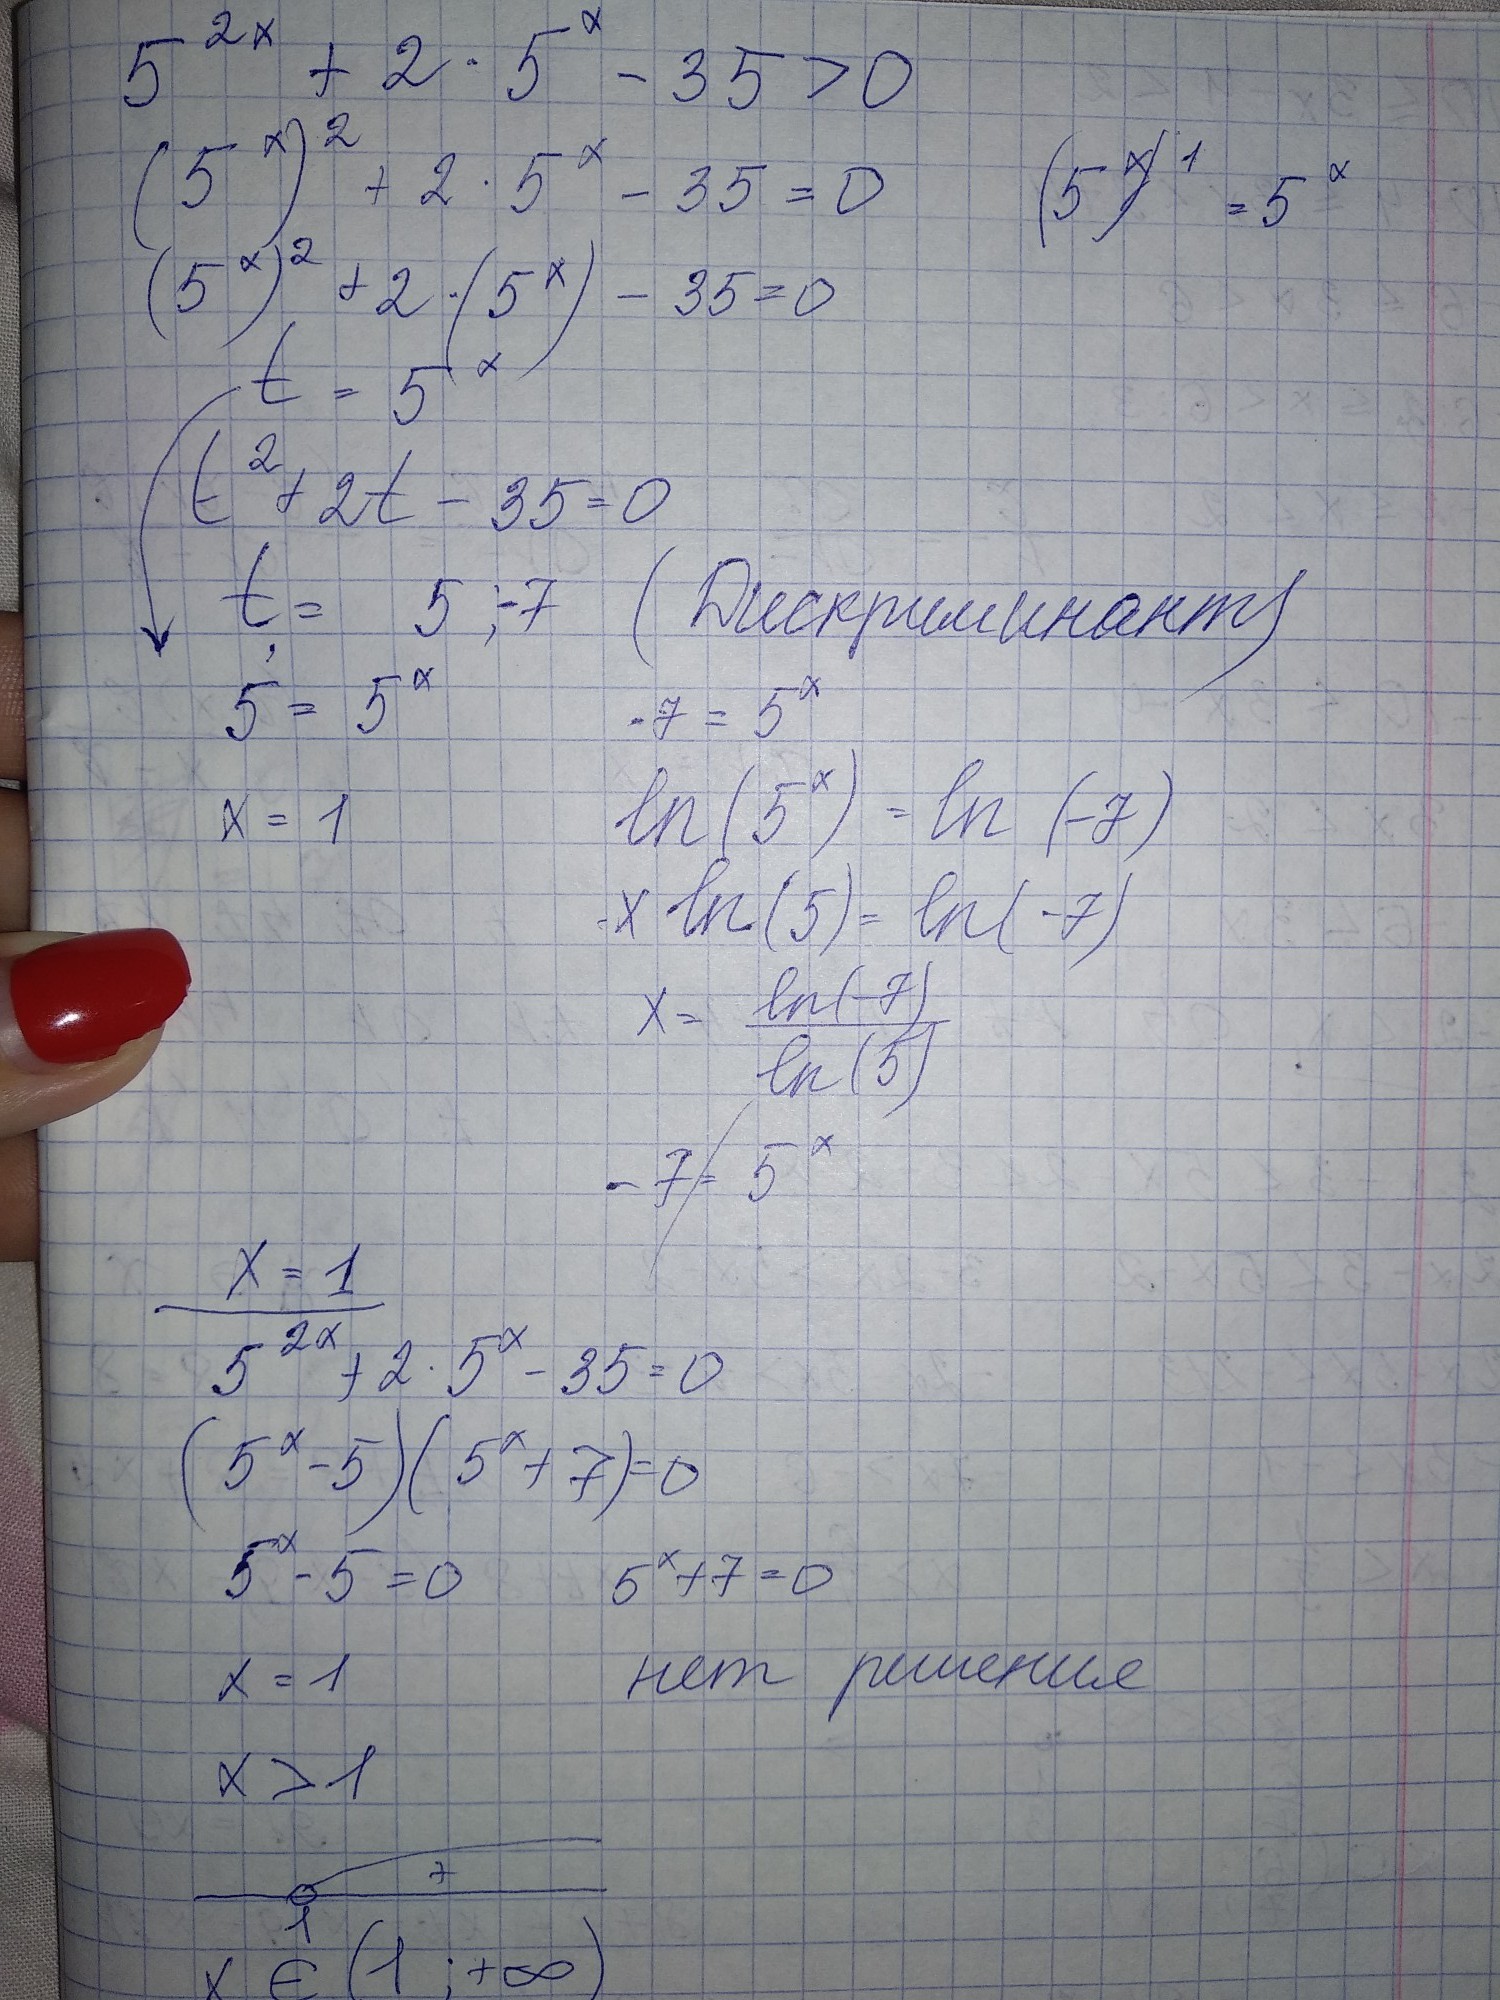 5^{2x} + 2 · 5^x - 35 > 0
(5^x)^2 + 2 · 5^x - 35 = 0
(5^x)^1 = 5^x
(5^x)^2 + 2 · (5^x) - 35 = 0
t = 5^x
t^2 + 2t - 35 = 0
t = 5 ; -7 (Дискриминант)
5 = 5^x -7 = 5^x
x = 1 ln(5^x) = ln(-7)
x ln(5) = ln(-7)
x = ln(-7) / ln(5)
-7 = 5^x
x = 1
5^{2x} + 2 · 5^x - 35 = 0
(5^x - 5)(5^x + 7) = 0
5^x - 5 = 0 5^x + 7 = 0
x = 1 нет решения
x > 1
+
1
x ∈ (1 ; +∞)